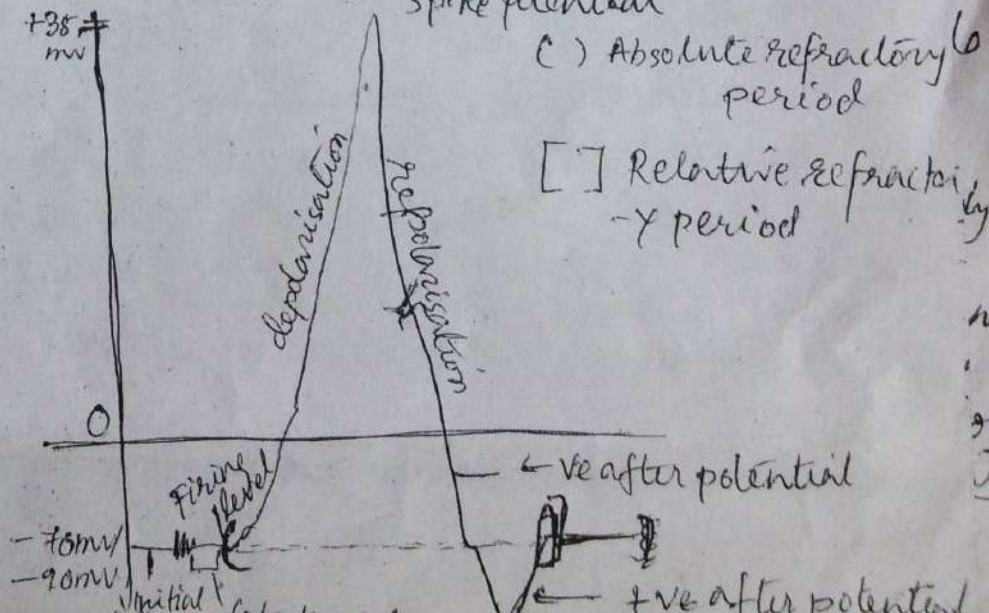 spike potential
+35
mv
( ) Absolute refractory
period
[ ] Relative refractor
-y period
depolarisation
repolarisation
0
Firing
level
-ve after potential
-70mv
-90mv
initial
+ve after potential